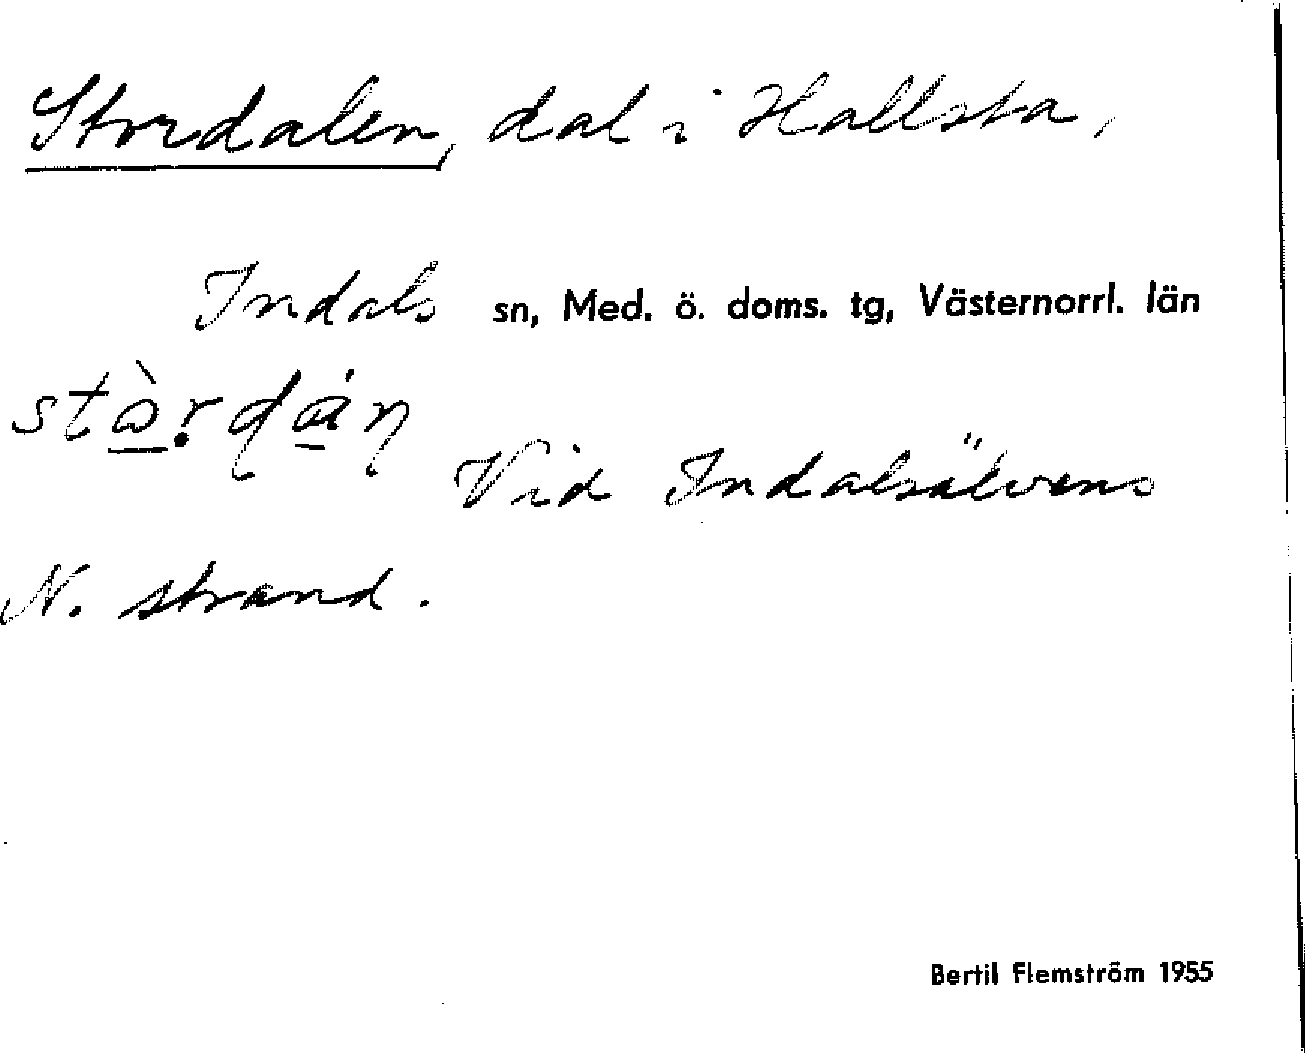 Stordalen, dal i Hallsta,
Indals sn, Med. ö. doms. tg, Västernorrl. län
Vid Indalsälvens
N. strand.
Bertil Flemström 1955